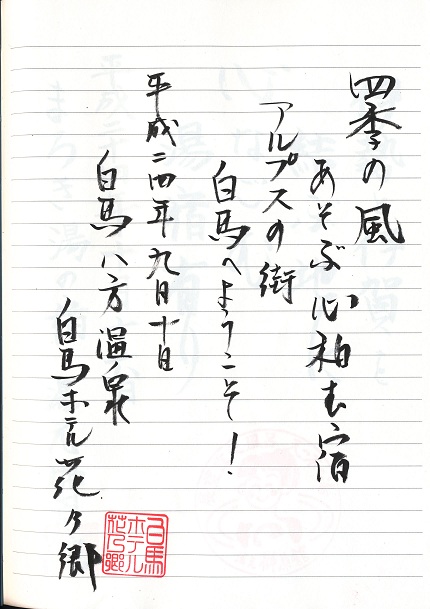 四季の風
あそぶ心和む宿
アルプスの街
白馬へようこそ！
平成二四年九月十日
白馬八方温泉
白馬ホテル花乃郷
白馬
ホテル
花乃郷